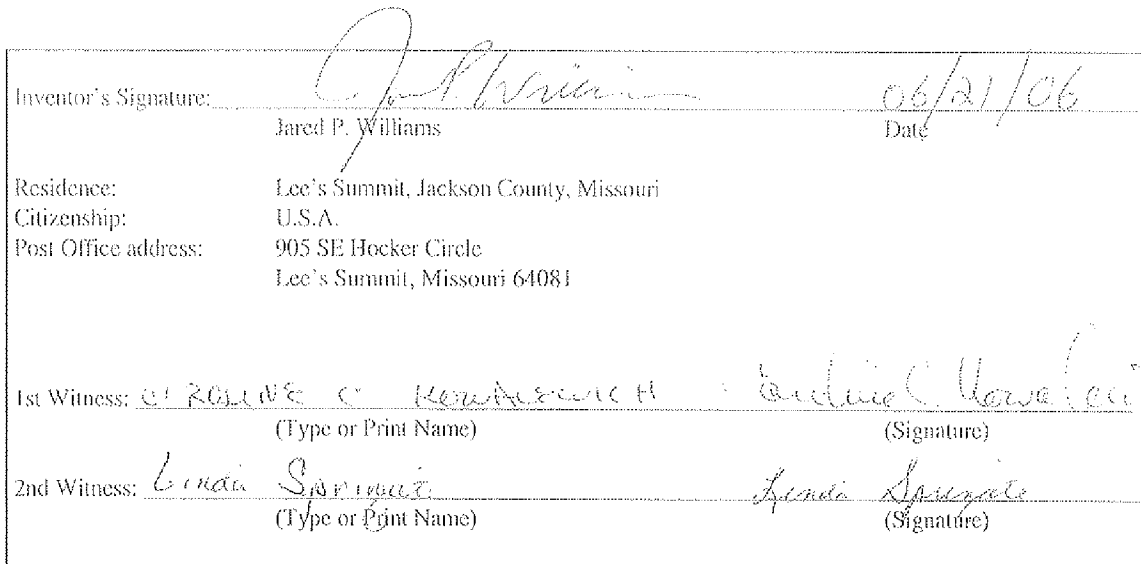 Inventor's Signature: 06/21/06
Jared P. Williams Date
Residence: Lee's Summit, Jackson County, Missouri
Citizenship: U.S.A.
Post Office address: 905 SE Hocker Circle
Lee's Summit, Missouri 64081
1st Witness: C
(Type or Print Name) (Signature)
2nd Witness: Linda Linda
(Type or Print Name) (Signature)